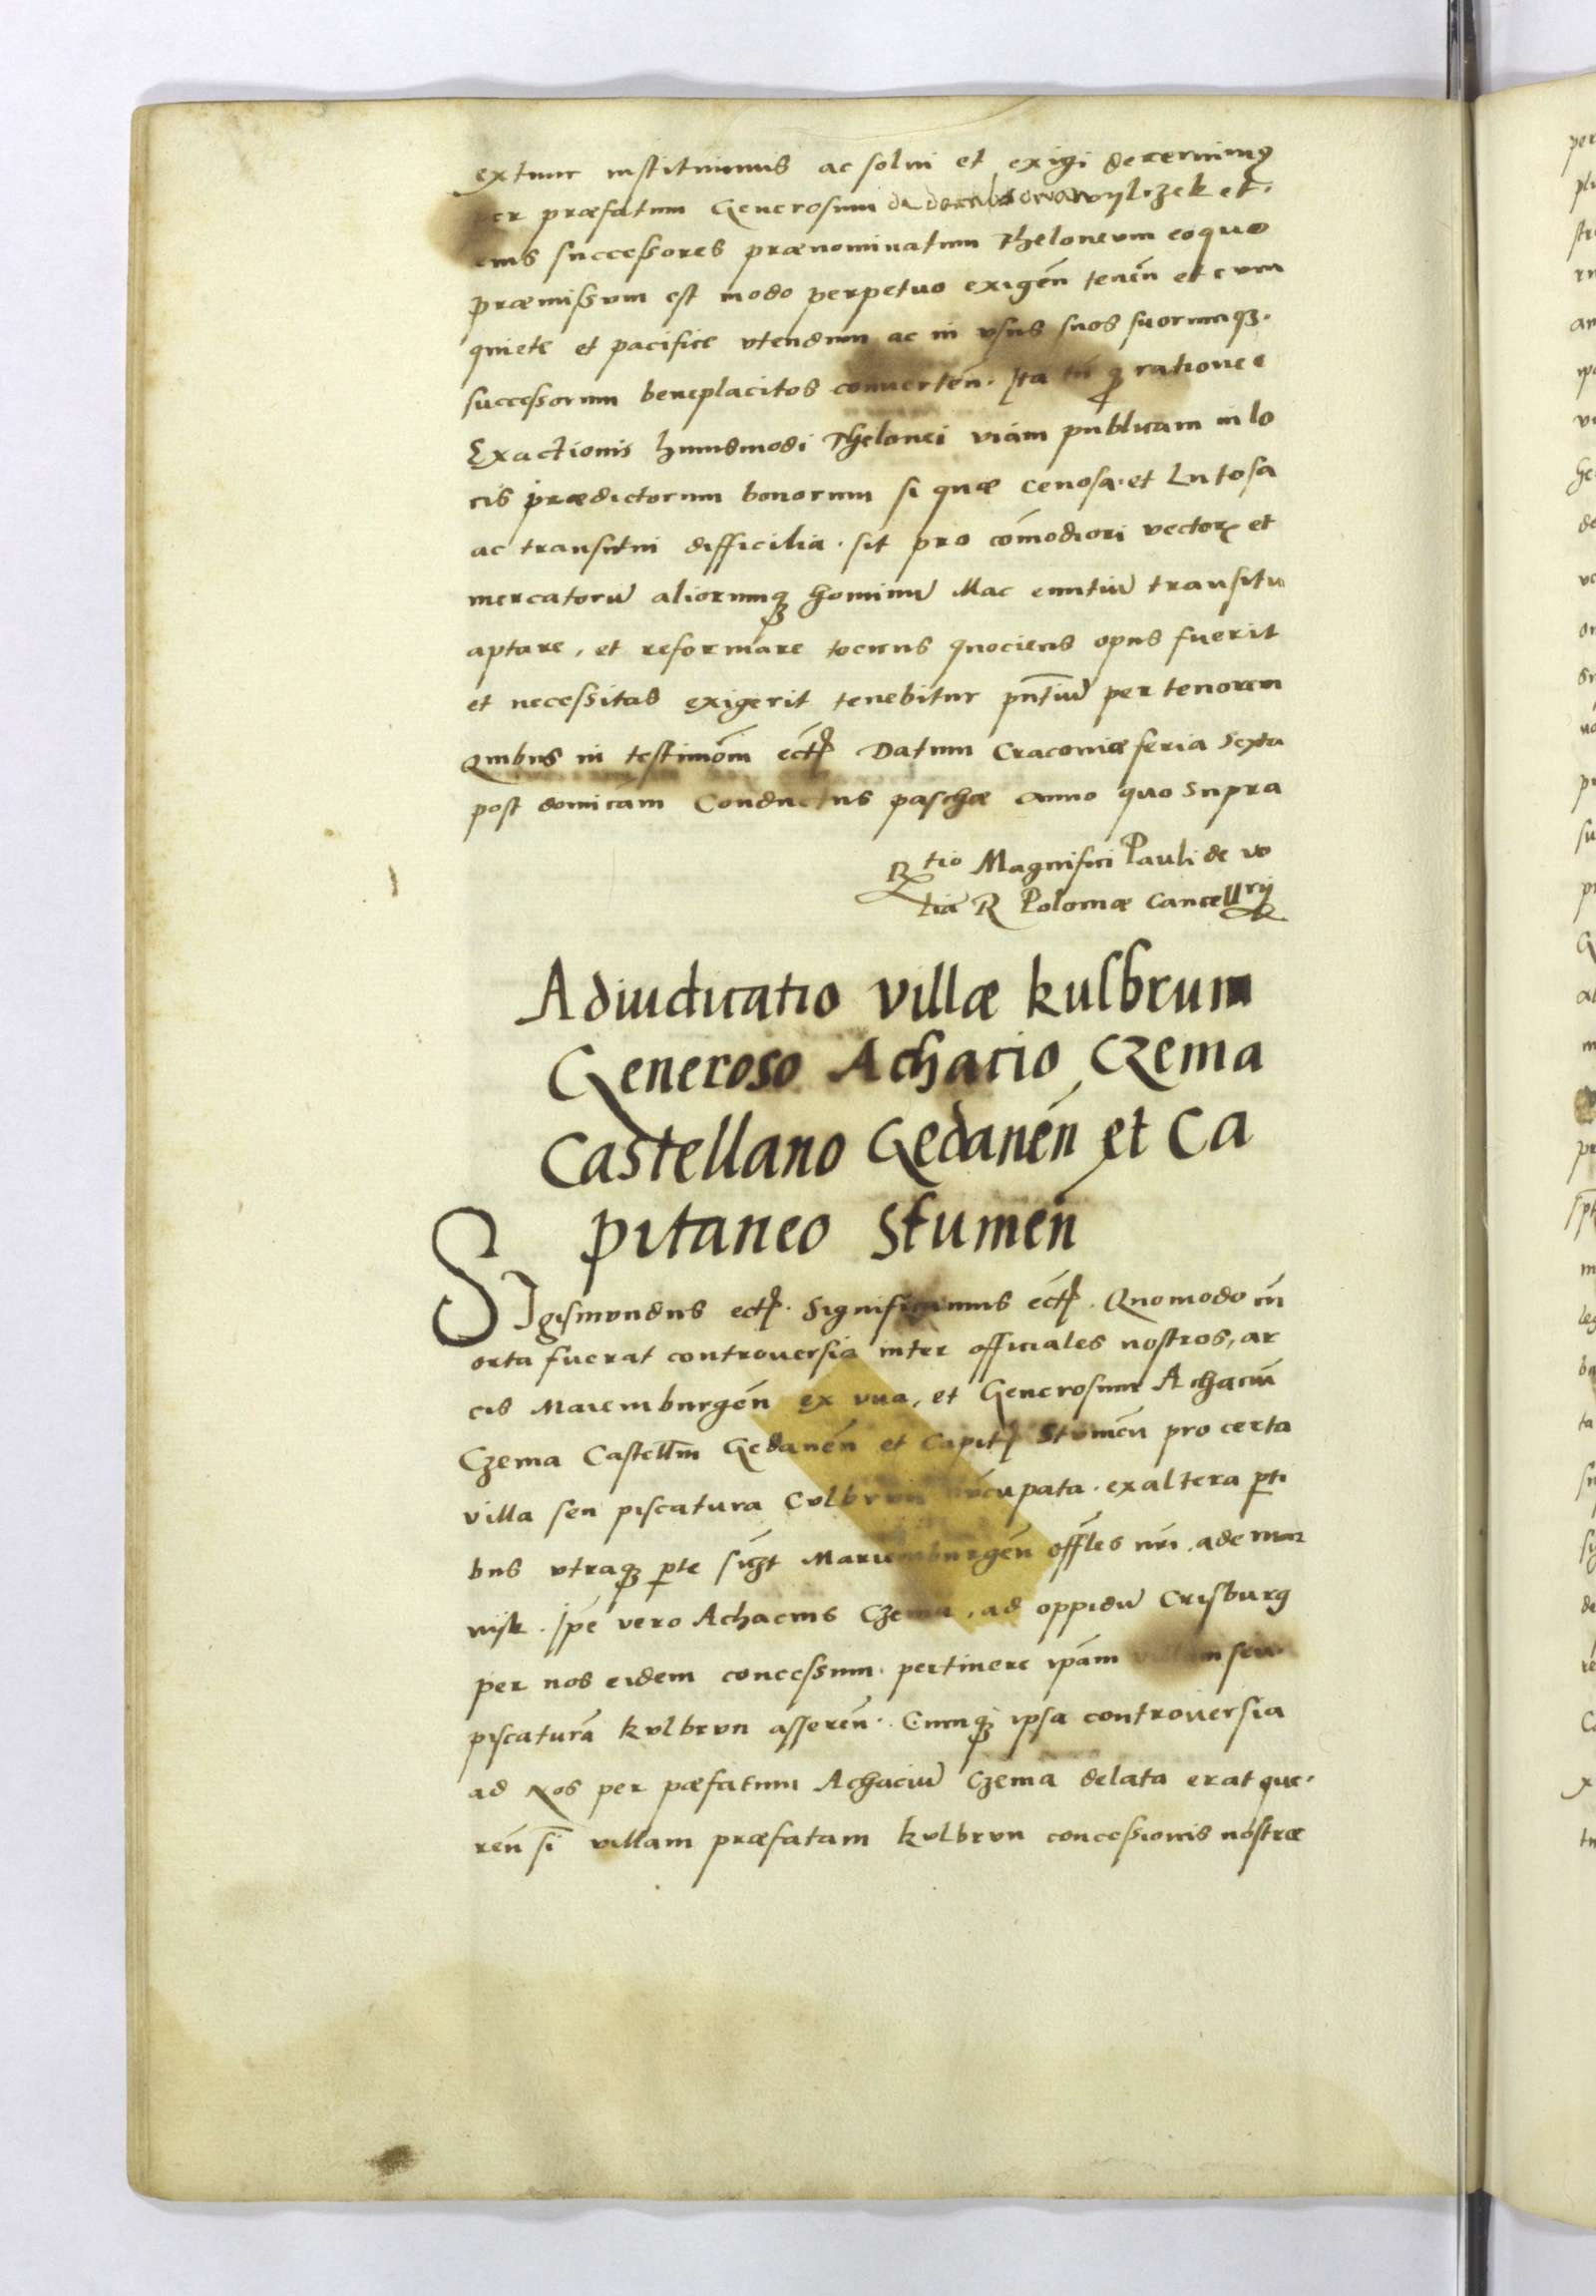 extunc instituimus ac solui et exigi decernimus
per præfatum Generosum de wylczek et
eius successores prænominatum Theloneum eo quo
præmissum est modo perpetuo exigeñ teneñ et cum
quiete et pacifice vtendum ac in vsus suos suorumqꝫ
successorum beneplacitos conuerteñ. Ita tñ ꝙ ratione
Exactionis huiusmodi Thelonei viam publicam in lo
cis prædictorum bonorum si quæ cenosa et Lutosa
ac transitui difficilia sit pro cōmodiori vectorꝫ et
mercatorū aliorumqꝫ hominū Mac euntiū transitu
aptare, et reformare tociens quociens opus fuerit
et necessitas exigerit tenebitur pn̄tiū per tenorem
Quibus in testimōm ectꝭ Datum Cracouiæ feria Sexta
post domicam Conductus paschæ anno quo Supra
Rtio Magnifici Pauli de wo
lia R Poloniæ Cancellrij
Adiudicatio villæ kulbrum
Generoso Achacio Czema
Castellano Gedaneñ et Ca
pitaneo Stumeñ
SIgismundus ectꝭ. Significamus ectꝭ. Quomodo cū
orta fuerat controuersia inter officiales nostros, ar
cis Mariemburgeñ ex vna, et Generosum Achaciū
Czema Castellm̄ Gedaneñ et Capitꝭ Stumeñ pro certa
villa seu piscatura Culbrun nūcupata. ex altera ꝑti
bus vtraqꝫ ꝑte Mariemburgeñ offles nr̄i ad
Ipē vero Achacius Czema, ad oppidū Crisburg
per nos eidem concessum pertinere ipām villam seu
piscaturā kulbrun assereñ. Cumqꝫ ipsa controuersia
ad Nos per pæfatum Achaciū Czema delata erat que
reñ si villam præfatam kulbrun concessionis nostræ